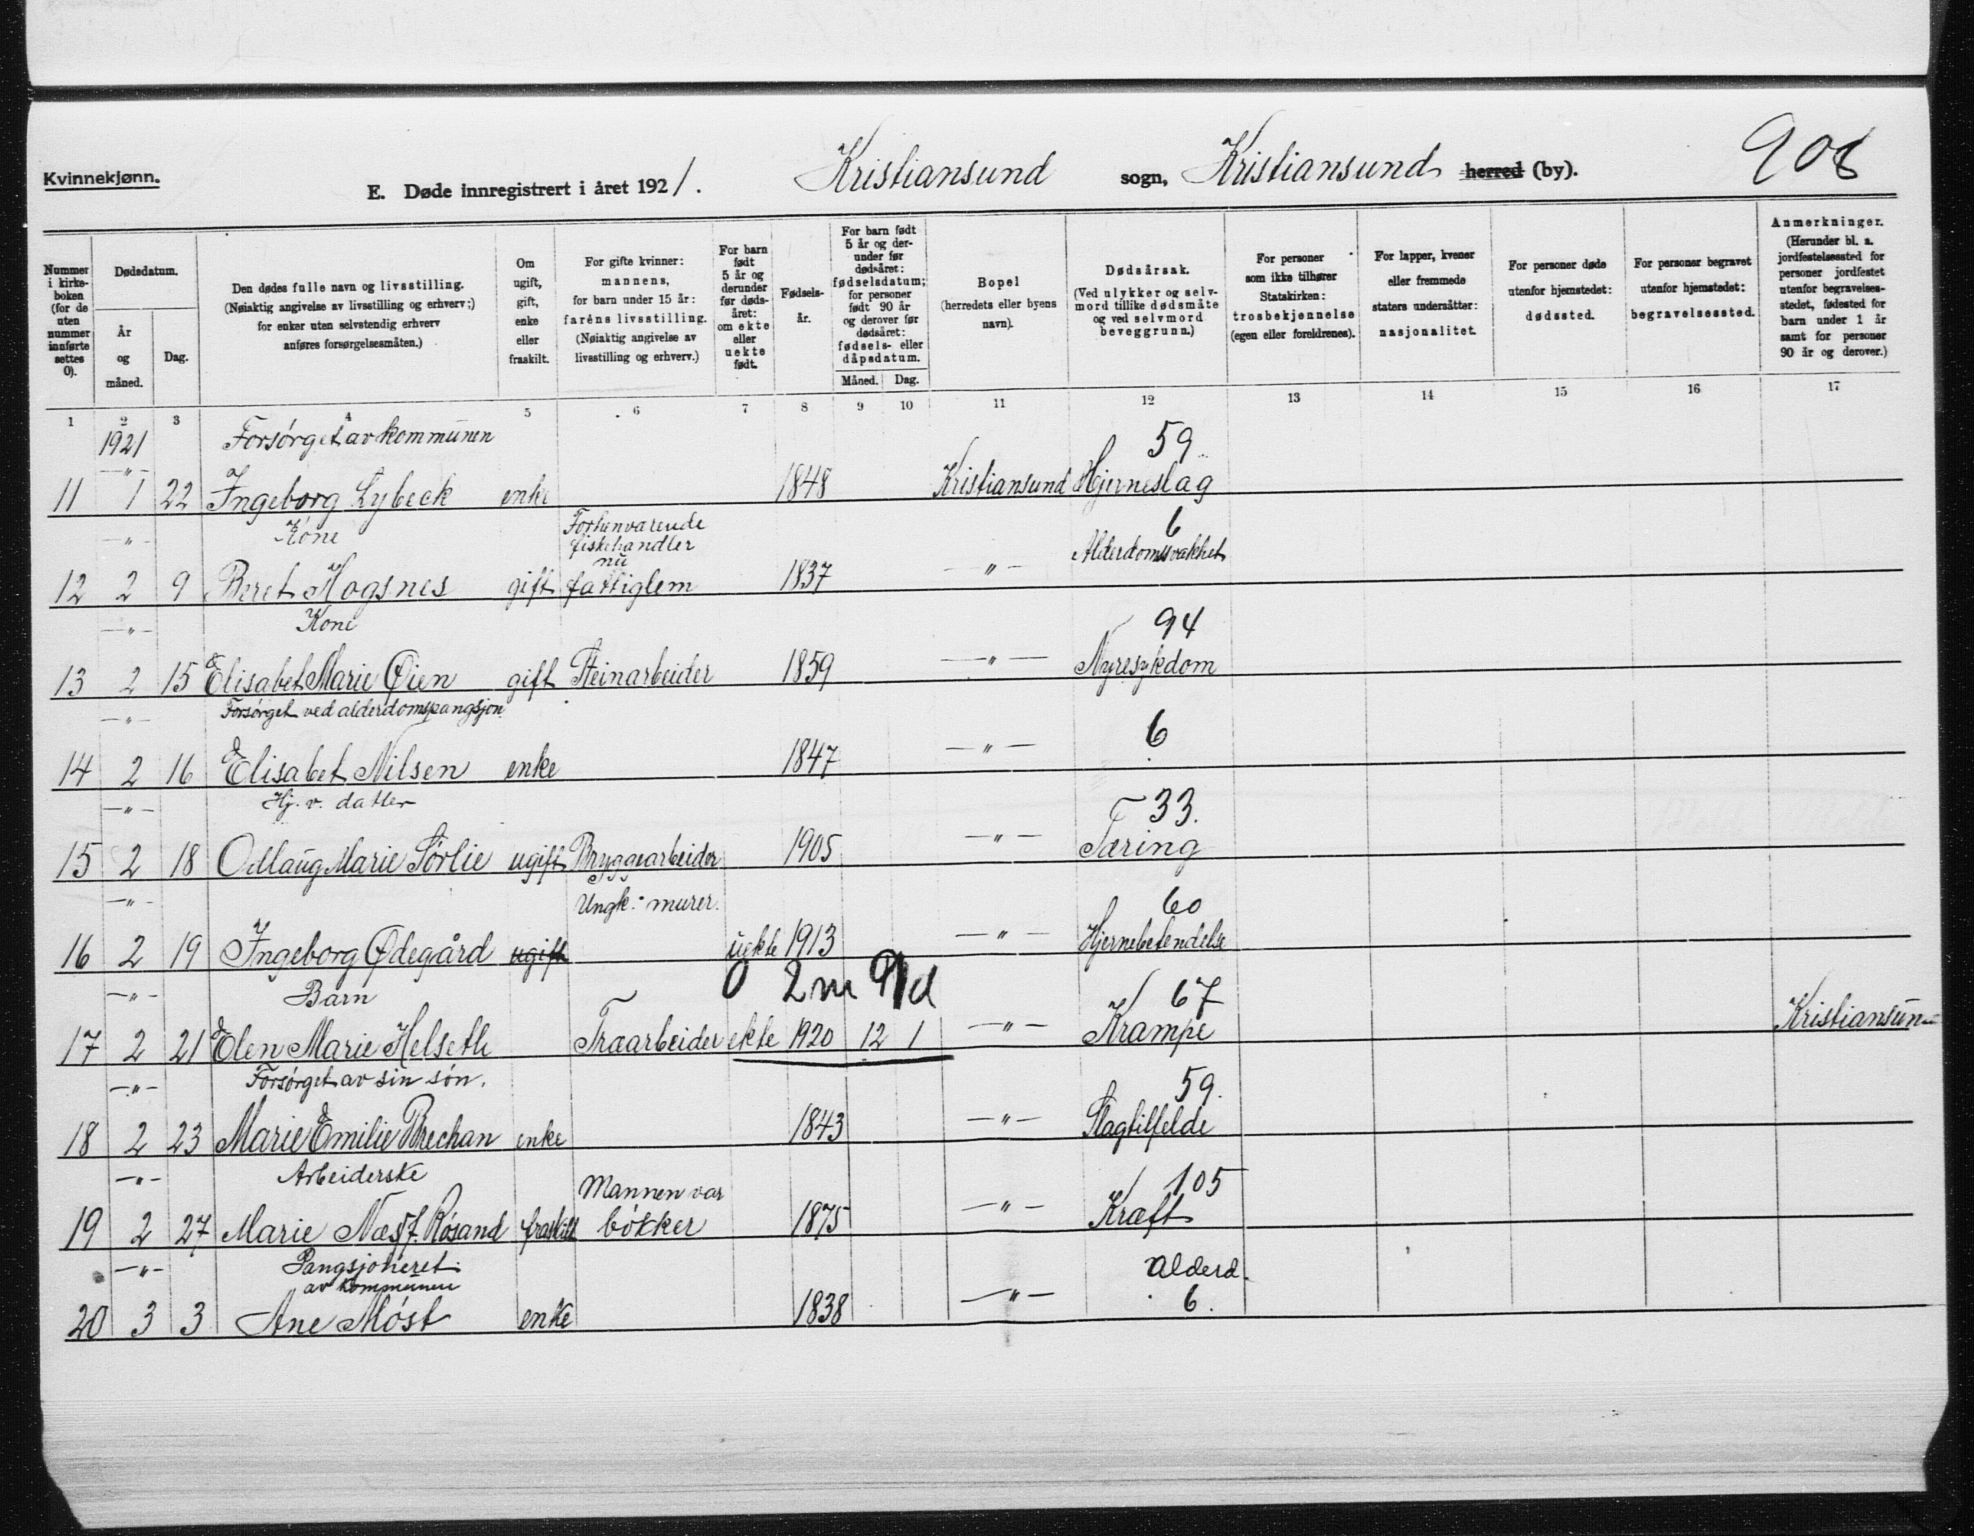 Kvinnekjønn.
E. Døde innregistrert i året 1921. Kristiansund sogn, Kristiansund herred (by). 908
Nummer i kirkeboken (for de uten nummer innførte settes 0).
Dødsdatum.
År og måned.
Dag.
Den dødes fulle navn og livsstilling.
(Nøiaktig angivelse av livsstilling og erhverv;)
for enker uten selvstendig erhverv
anføres forsørgelsesmåten.)
Om ugift, gift, enke eller fraskilt.
For gifte kvinner:
mannens,
for barn under 15 år:
farens livsstilling.
(Nøiaktig angivelse av
livsstilling og erhverv.)
For barn født 5 år og derunder før dødsåret: om ekte eller uekte født.
Fødselsår.
For barn født 5 år og derunder før dødsåret: fødselsdatum; for personer født 90 år og derover før dødsåret: fødsels- eller dåpsdatum.
Måned. Dag.
Bopel
(herredets eller byens
navn).
Dødsårsak.
(Ved ulykker og selv-
mord tillike dødsmåte
og ved selvmord
beveggrunn.)
For personer
som ikke tilhører
Statskirken:
trosbekjennelse
(egen eller foreldrenes).
For lapper, kvener
eller fremmede
staters undersåtter:
nasjonalitet.
For personer døde
utenfor hjemstedet:
dødssted.
For personer begravet
utenfor hjemstedet:
begravelsessted.
Anmerkninger.
(Herunder bl. a.
jordfestelsessted for
personer jordfestet
utenfor begravelses-
stedet, fødested for
barn under 1 år
samt for personer
90 år og derover.)
1 2 3 4 5 6 7 8 9 10 11 12 13 14 15 16 17
1921 Forsørget av kommunen 59
11 1 22 Ingeborg Lybeck enke 1848 Kristiansund Hjerneslag
—"— Kone Forhenværende fiskehandler nu 6
12 2 9 Beret Hogsnes gift fattiglem 1837 —"— Alderdomssvakhet
—"— Kone 94
13 2 15 Elisabet Marie Øien gift Steinarbeider 1859 —"— Nyresykdom
—"— Forsørget ved alderdomspangsjon
14 2 16 Elisabet Nilsen enke 1847 —"— 6
—"— Hj. v. datter 33.
15 2 18 Odlaug Marie Sørlie ugift Bryggearbeider 1905 —"— Tæring
—"— Ungk. murer. 60
16 2 19 Ingeborg Ødegård ugift uekte 1913 —"— Hjernebetendelse
—"— Barn 0 2m 9d 67
17 2 21 Elen Marie Helseth Træarbeider ekte 1920 12 1 —"— Krampe Kristiansund
—"— Forsørget av sin søn. 59.
18 2 23 Marie Emilie Brechan enke 1843 —"— Slagtilfelde
—"— Arbeiderske Mannen var 105
19 2 27 Marie Næs f. Røsand fraskilt bøkker 1875 —"— Kræft
—"— Pangsjoneret av kommunen Alderd.
20 3 3 Ane Møst enke 1838 —"— 6.